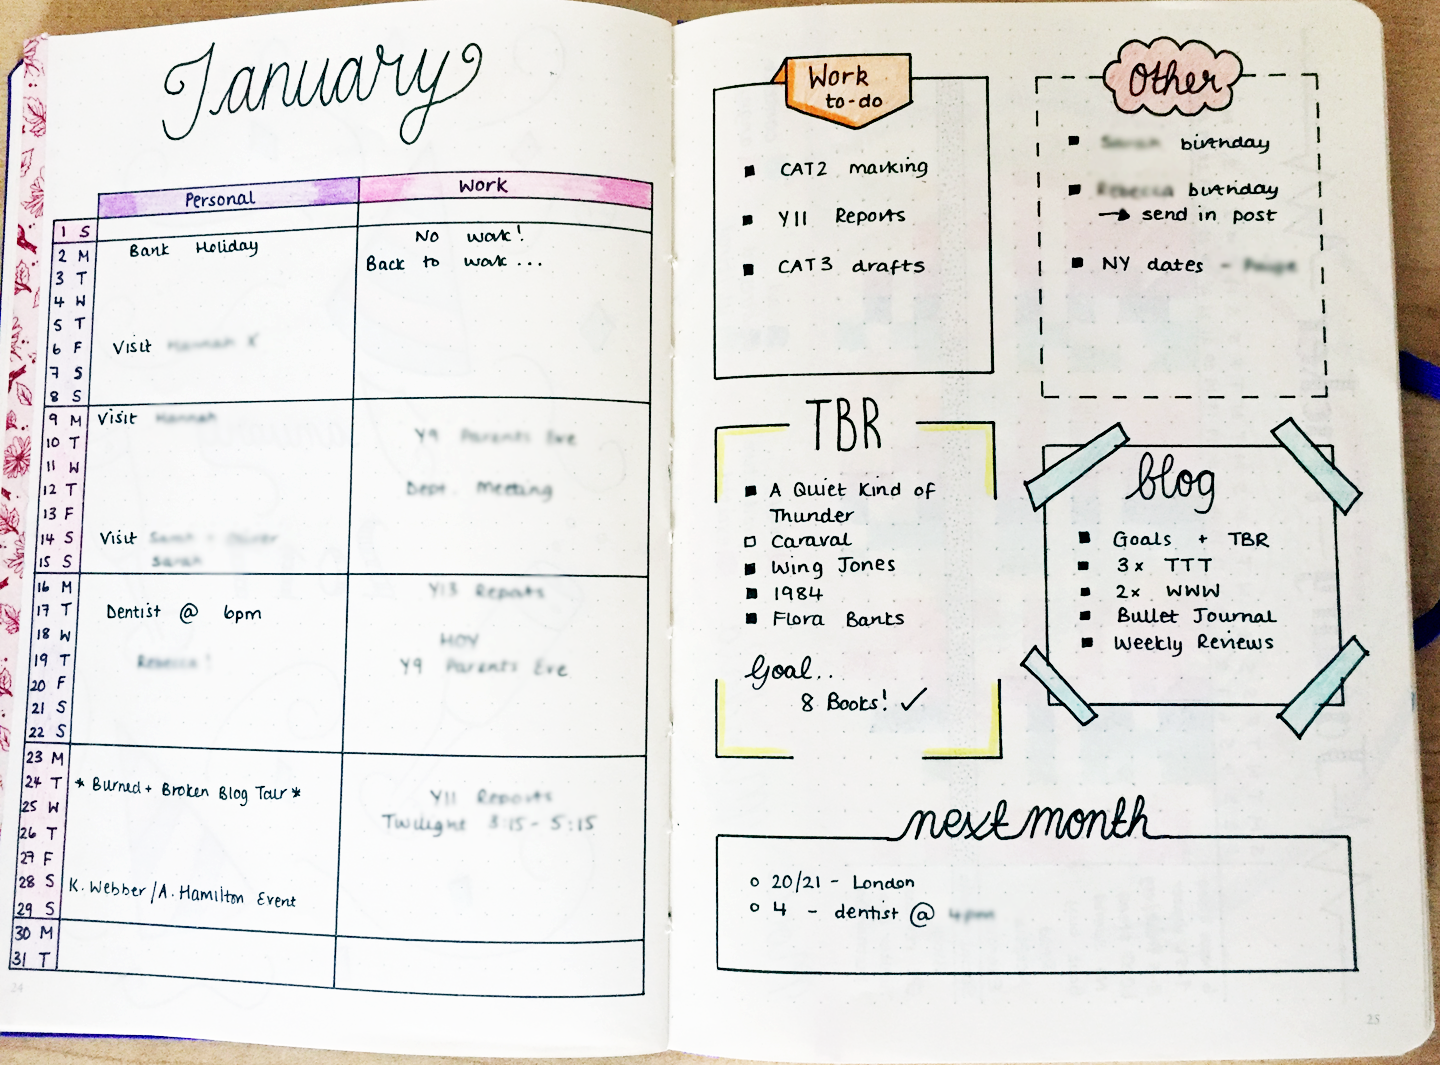 January
Personal
Work
1 S
2 M Bank Holiday No work!
3 T Back to work...
4 W
5 T
6 F Visit
7 S
8 S
9 M Visit
10 T Y9 Parents Eve
11 W
12 T Dept. Meeting
13 F
14 S Visit
15 S
16 M Y13 Reports
17 T Dentist @ 6pm
18 W
19 T Y9 Parents Eve
20 F
21 S
22 S
23 M
24 T * Burned + Broken Blog Tour * Y11 Reports
25 W Twilight 3:15 - 5:15
26 T
27 F
28 S K. Webber / A. Hamilton Event
29 S
30 M
31 T
24
Work
to-do
CAT2 marking
Y11 Reports
CAT3 drafts
Other
birthday
birthday
→ send in post
NY dates -
TBR
A Quiet Kind of
Thunder
Caraval
Wing Jones
1984
Flora Banks
Goal..
8 Books! ✓
blog
Goals + TBR
3x TTT
2x WWW
Bullet Journal
Weekly Reviews
next month
20/21 - London
4 - dentist @
25